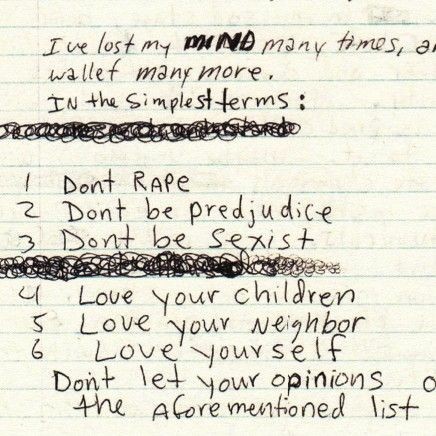 I've lost my MIND many times, a
wallet many more.
IN the Simplest terms :
1 Dont RAPE
2 Dont be predjudice
3 Dont be sexist
4 Love your children
5 Love your Neighbor
6 Love yourself
Dont let your opinions o
the aforementioned list